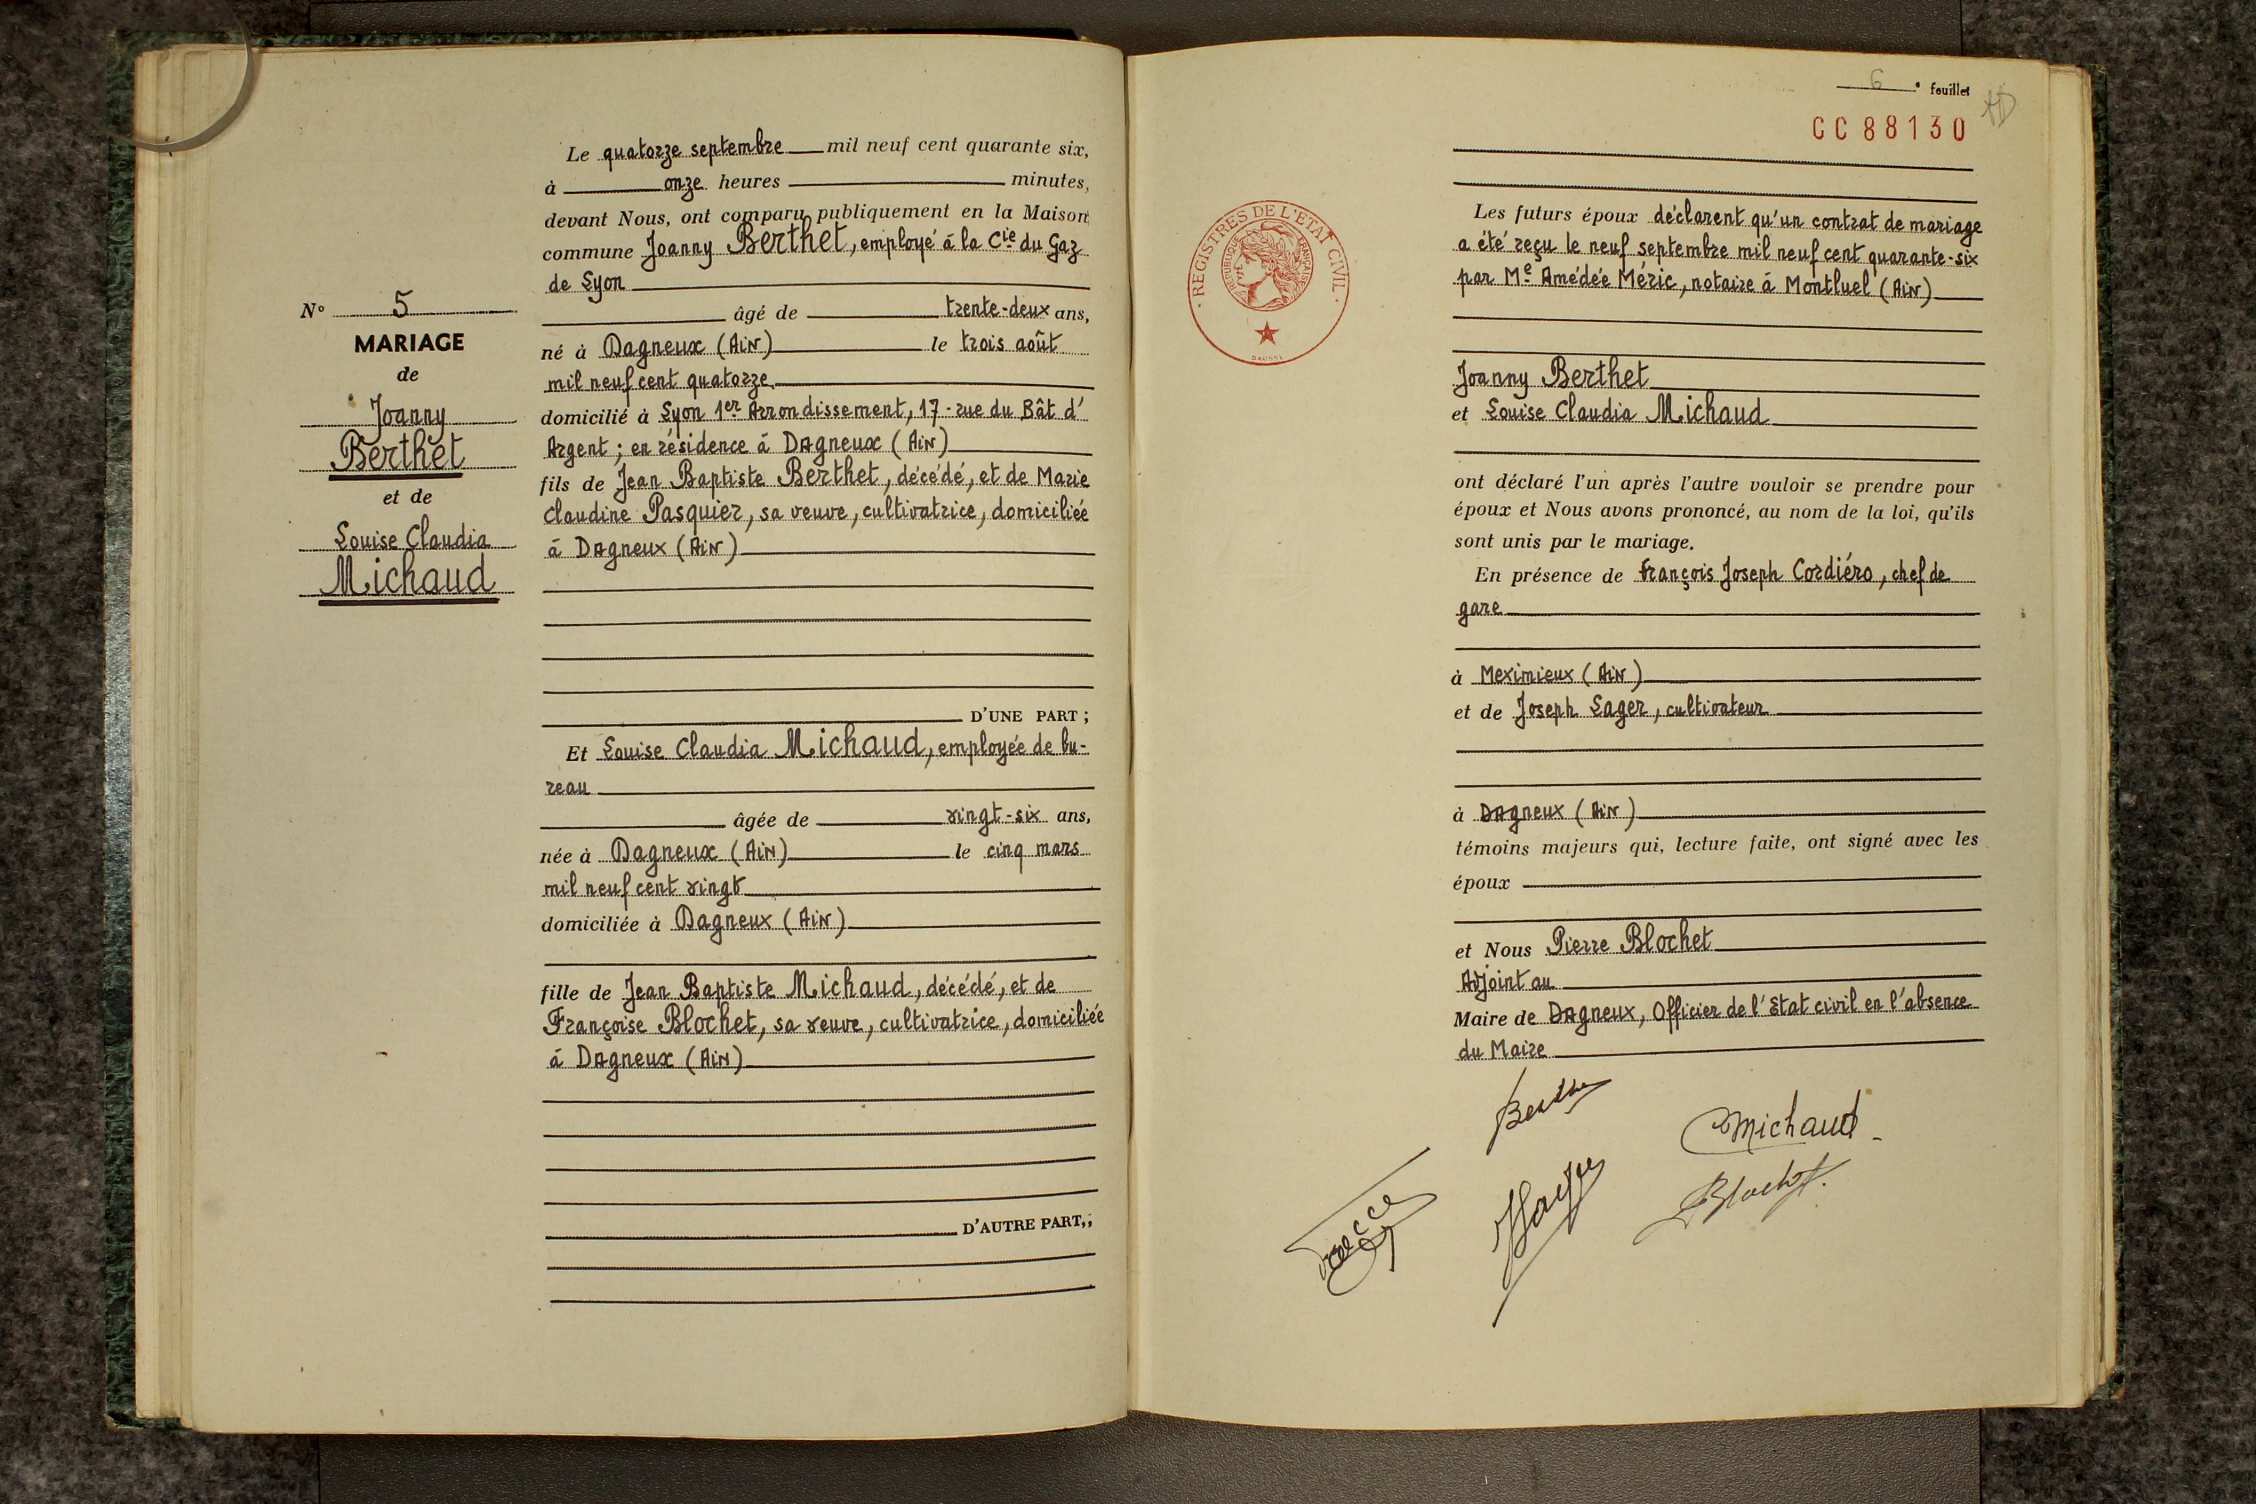 N° 5
MARIAGE
de
Joanny
Berthet
et de
Louise Claudia
Michaud
Le quatorze septembre mil neuf cent quarante six,
à onze heures minutes,
devant Nous, ont comparu publiquement en la Maison
commune Joanny Berthet, employé à la Cie du Gaz
de Lyon
âgé de trente-deux ans,
né à Dagneux (Ain) le trois août
mil neuf cent quatorze
domicilié à Lyon 1er Arrondissement, 17 - rue du Bât d'
Argent ; en résidence à Dagneux (Ain)
fils de Jean Baptiste Berthet, décédé, et de Marie
Claudine Pasquier, sa veuve, cultivatrice, domiciliée
à Dagneux (Ain)
D'UNE PART ;
Et Louise Claudia Michaud, employée de bu-
reau
âgée de vingt-six ans,
née à Dagneux (Ain) le cinq mars
mil neuf cent vingt
domiciliée à Dagneux (Ain)
fille de Jean Baptiste Michaud, décédé, et de
Françoise Blochet, sa veuve, cultivatrice, domiciliée
à Dagneux (Ain)
D'AUTRE PART,;
6 e feuillet
AD
CC 88130
REGISTRES DE L'ETAT CIVIL
REPUBLIQUE FRANÇAISE
Les futurs époux déclarent qu'un contrat de mariage
a été reçu le neuf septembre mil neuf cent quarante-six
par Me Amédée Méric, notaire à Montluel (Ain)
Joanny Berthet
et Louise Claudia Michaud
ont déclaré l'un après l'autre vouloir se prendre pour
époux et Nous avons prononcé, au nom de la loi, qu'ils
sont unis par le mariage.
En présence de François Joseph Cordiéro, chef de
gare
à Meximieux (Ain)
et de Joseph Lager, cultivateur
à Dagneux (Ain)
témoins majeurs qui, lecture faite, ont signé avec les
époux
et Nous Pierre Blochet
Adjoint au
Maire de Dagneux, Officier de l'Etat civil en l'absence
du Maire
Michaud
Blochet